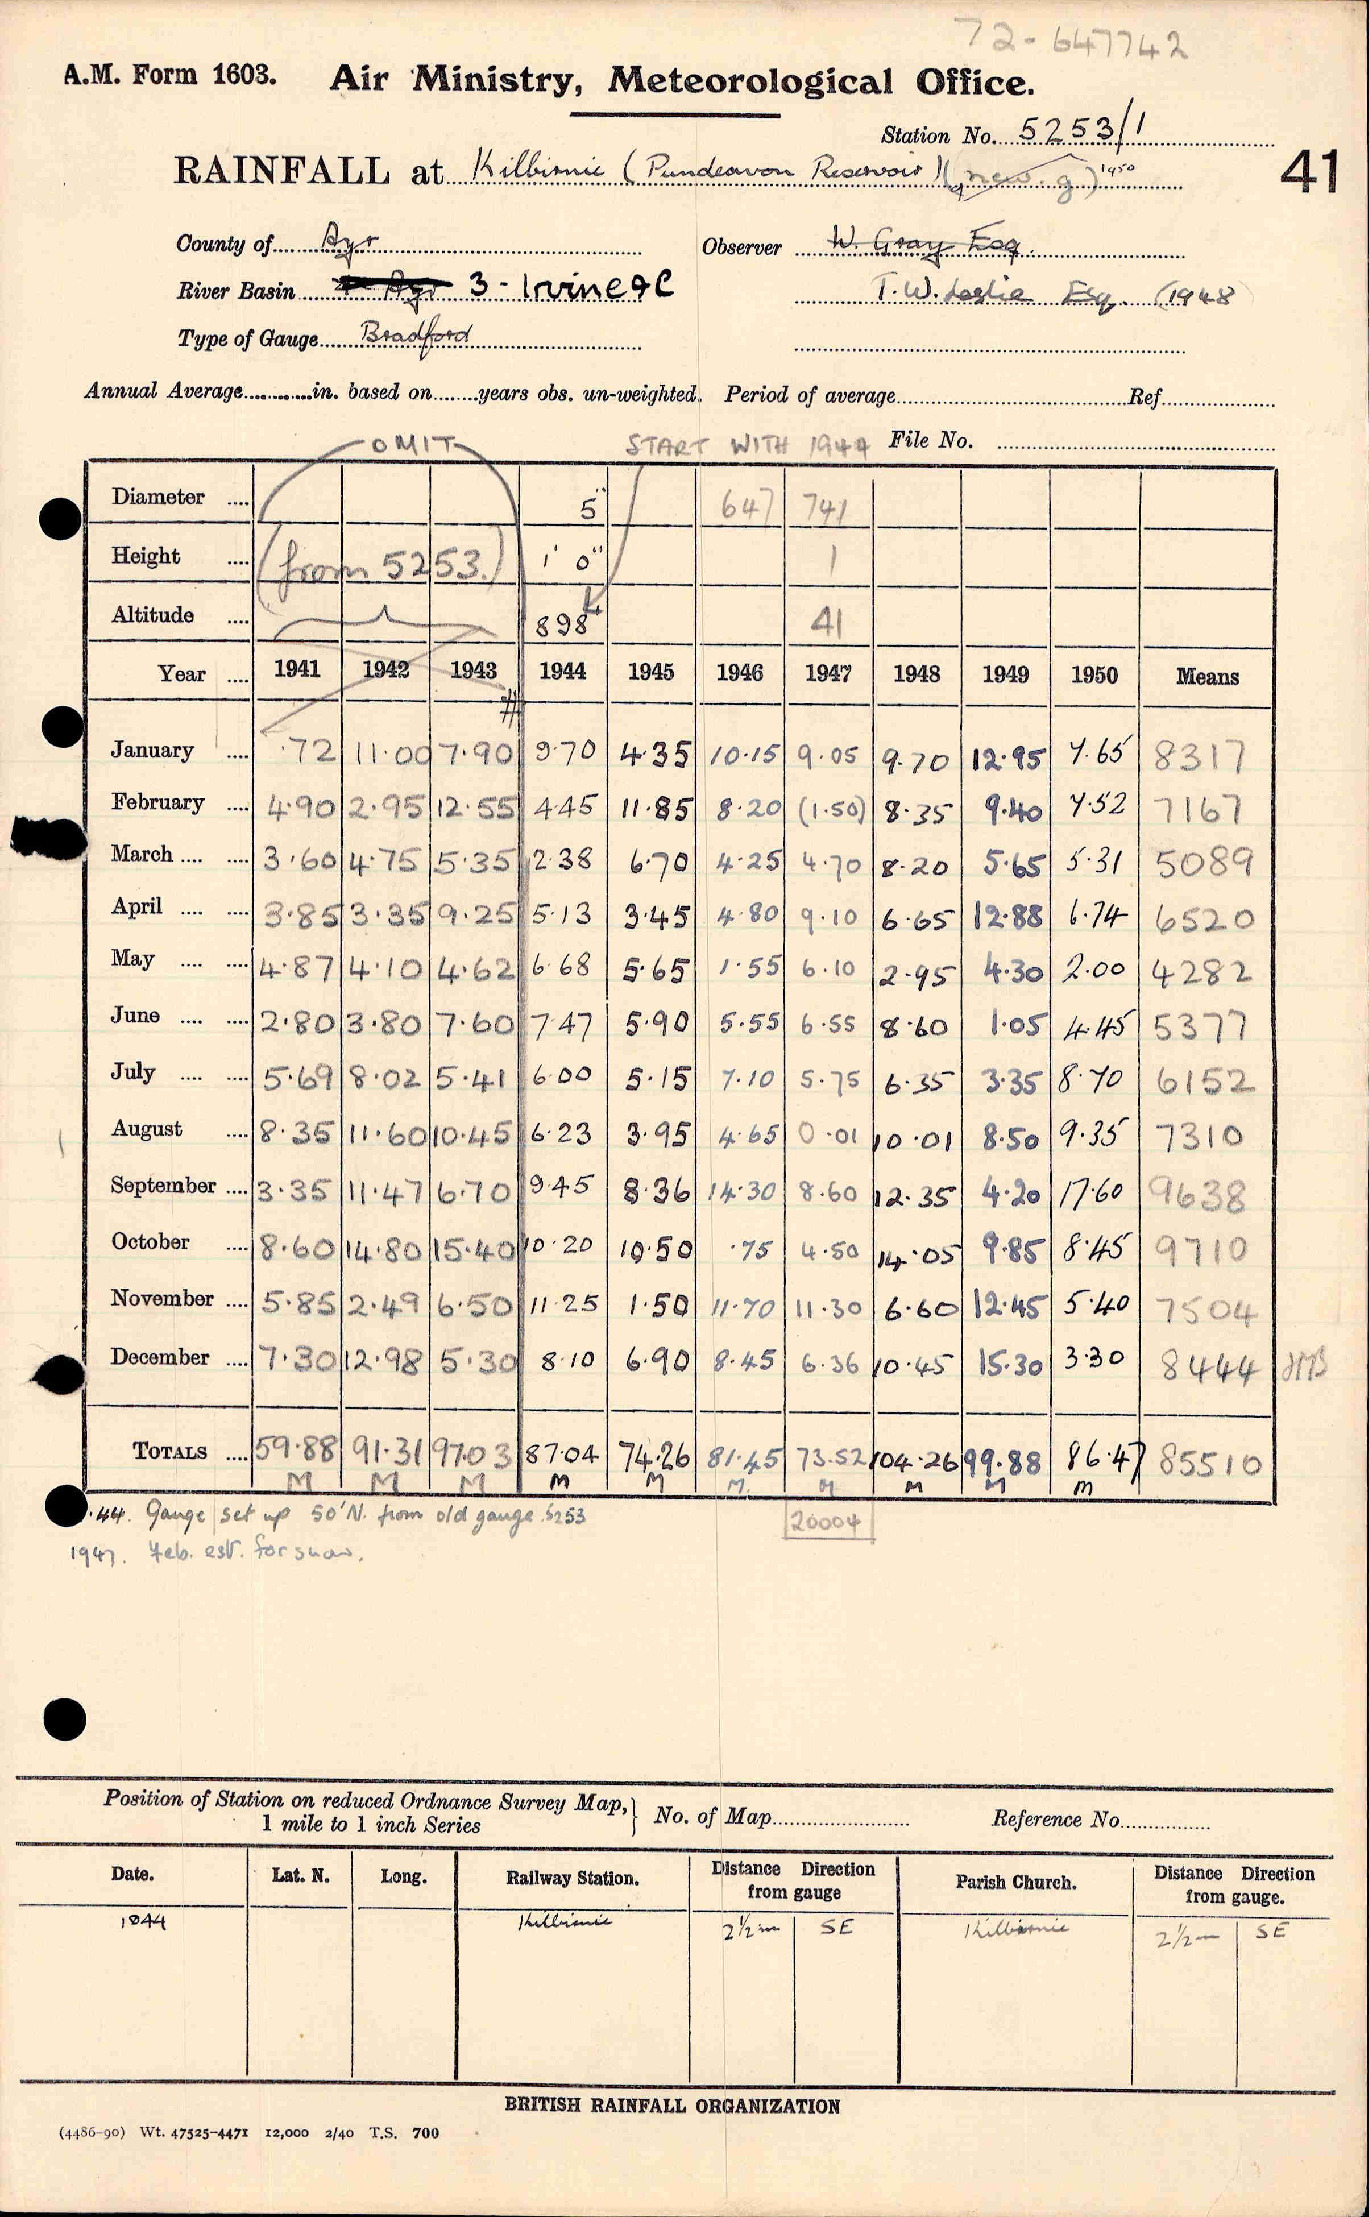 72-647742
A.M. Form 1603. Air Ministry, Meteorological Office.
Station No. 5253/1
RAINFALL at Kilbirnie (Pundeavon Reservoir) (new g) 1950
41
County of Ayr Observer W. Gray Esq.
River Basin Ayr 3 - Irvine &C T.W. Leslie Esq. (1948)
Type of Gauge Bradford
Annual Average in. based on years obs. un-weighted. Period of average Ref.
OMIT START WITH 1944 File No.
Diameter 5" 647 741
Height (from 5253.) 1' 0" 1
Altitude 898 41
Year 1941 1942 1943 1944 1945 1946 1947 1948 1949 1950 Means
January .72 11.00 7.90 9.70 4.35 10.15 9.05 9.70 12.95 7.65 8317
February 4.90 2.95 12.55 4.45 11.85 8.20 (1.50) 8.35 9.40 7.52 7167
March 3.60 4.75 5.35 2.38 6.70 4.25 4.70 8.20 5.65 5.31 5089
April 3.85 3.35 9.25 5.13 3.45 4.80 9.10 6.65 12.88 6.74 6520
May 4.87 4.10 4.62 6.68 5.65 1.55 6.10 2.95 4.30 2.00 4282
June 2.80 3.80 7.60 7.47 5.90 5.55 6.55 8.60 1.05 4.45 5377
July 5.69 8.02 5.41 6.00 5.15 7.10 5.75 6.35 3.35 8.70 6152
August 8.35 11.60 10.45 6.23 3.95 4.65 0.01 10.01 8.50 9.35 7310
September 3.35 11.47 6.70 9.45 8.36 14.30 8.60 12.35 4.20 17.60 9638
October 8.60 14.80 15.40 10.20 10.50 .75 4.50 14.05 9.85 8.45 9710
November 5.85 2.49 6.50 11.25 1.50 11.70 11.30 6.60 12.45 5.40 7504
December 7.30 12.98 5.30 8.10 6.90 8.45 6.36 10.45 15.30 3.30 8444
TOTALS 59.88 91.31 97.03 87.04 74.26 81.45 73.52 104.26 99.88 86.47 85510
M M M M M M M M M M
.44. Gauge set up 50' N. from old gauge 5253
20004
1947. Feb. est. for snow.
Position of Station on reduced Ordnance Survey Map, 1 mile to 1 inch Series } No. of Map Reference No.
Date. Lat. N. Long. Railway Station. Distance Direction from gauge Parish Church. Distance Direction from gauge.
1944 Kilbirnie 2½m SE Kilbirnie 2½m SE
BRITISH RAINFALL ORGANIZATION
(4486-90) Wt. 47525-4471 12,000 2/40 T.S. 700